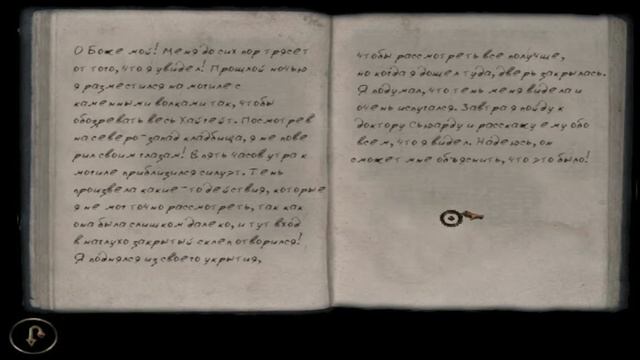 О Боже мой! Меня до сих пор трясет
от того, что я увидел! Прошлой ночью
я разместился на могиле с
каменными волками так, чтобы
обозревать весь Хайгейт. Посмотрев
на северо-запад кладбища, я не пове
рил своим глазам! В пять часов утра к
могиле приблизился силуэт. Тень
произвела какие-то действия, которые
я не мог точно рассмотреть, так как
она была слишком далеко, и тут вход
в наглухо закрытый склеп отворился!
Я поднялся из своего укрытия,
чтобы рассмотреть все получше,
но когда я дошел туда, дверь закрылась.
Я подумал, что тень меня видела и
очень испугался. Завтра я пойду к
доктору Сьюарду и расскажу ему обо
всем, что я видел. Надеюсь, он
сможет мне объяснить, что это было!